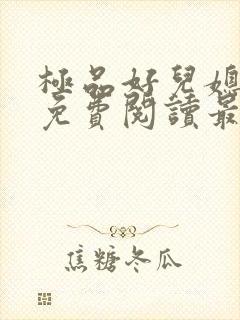 極品好兒媳
免費閱讀最
焦糖冬瓜